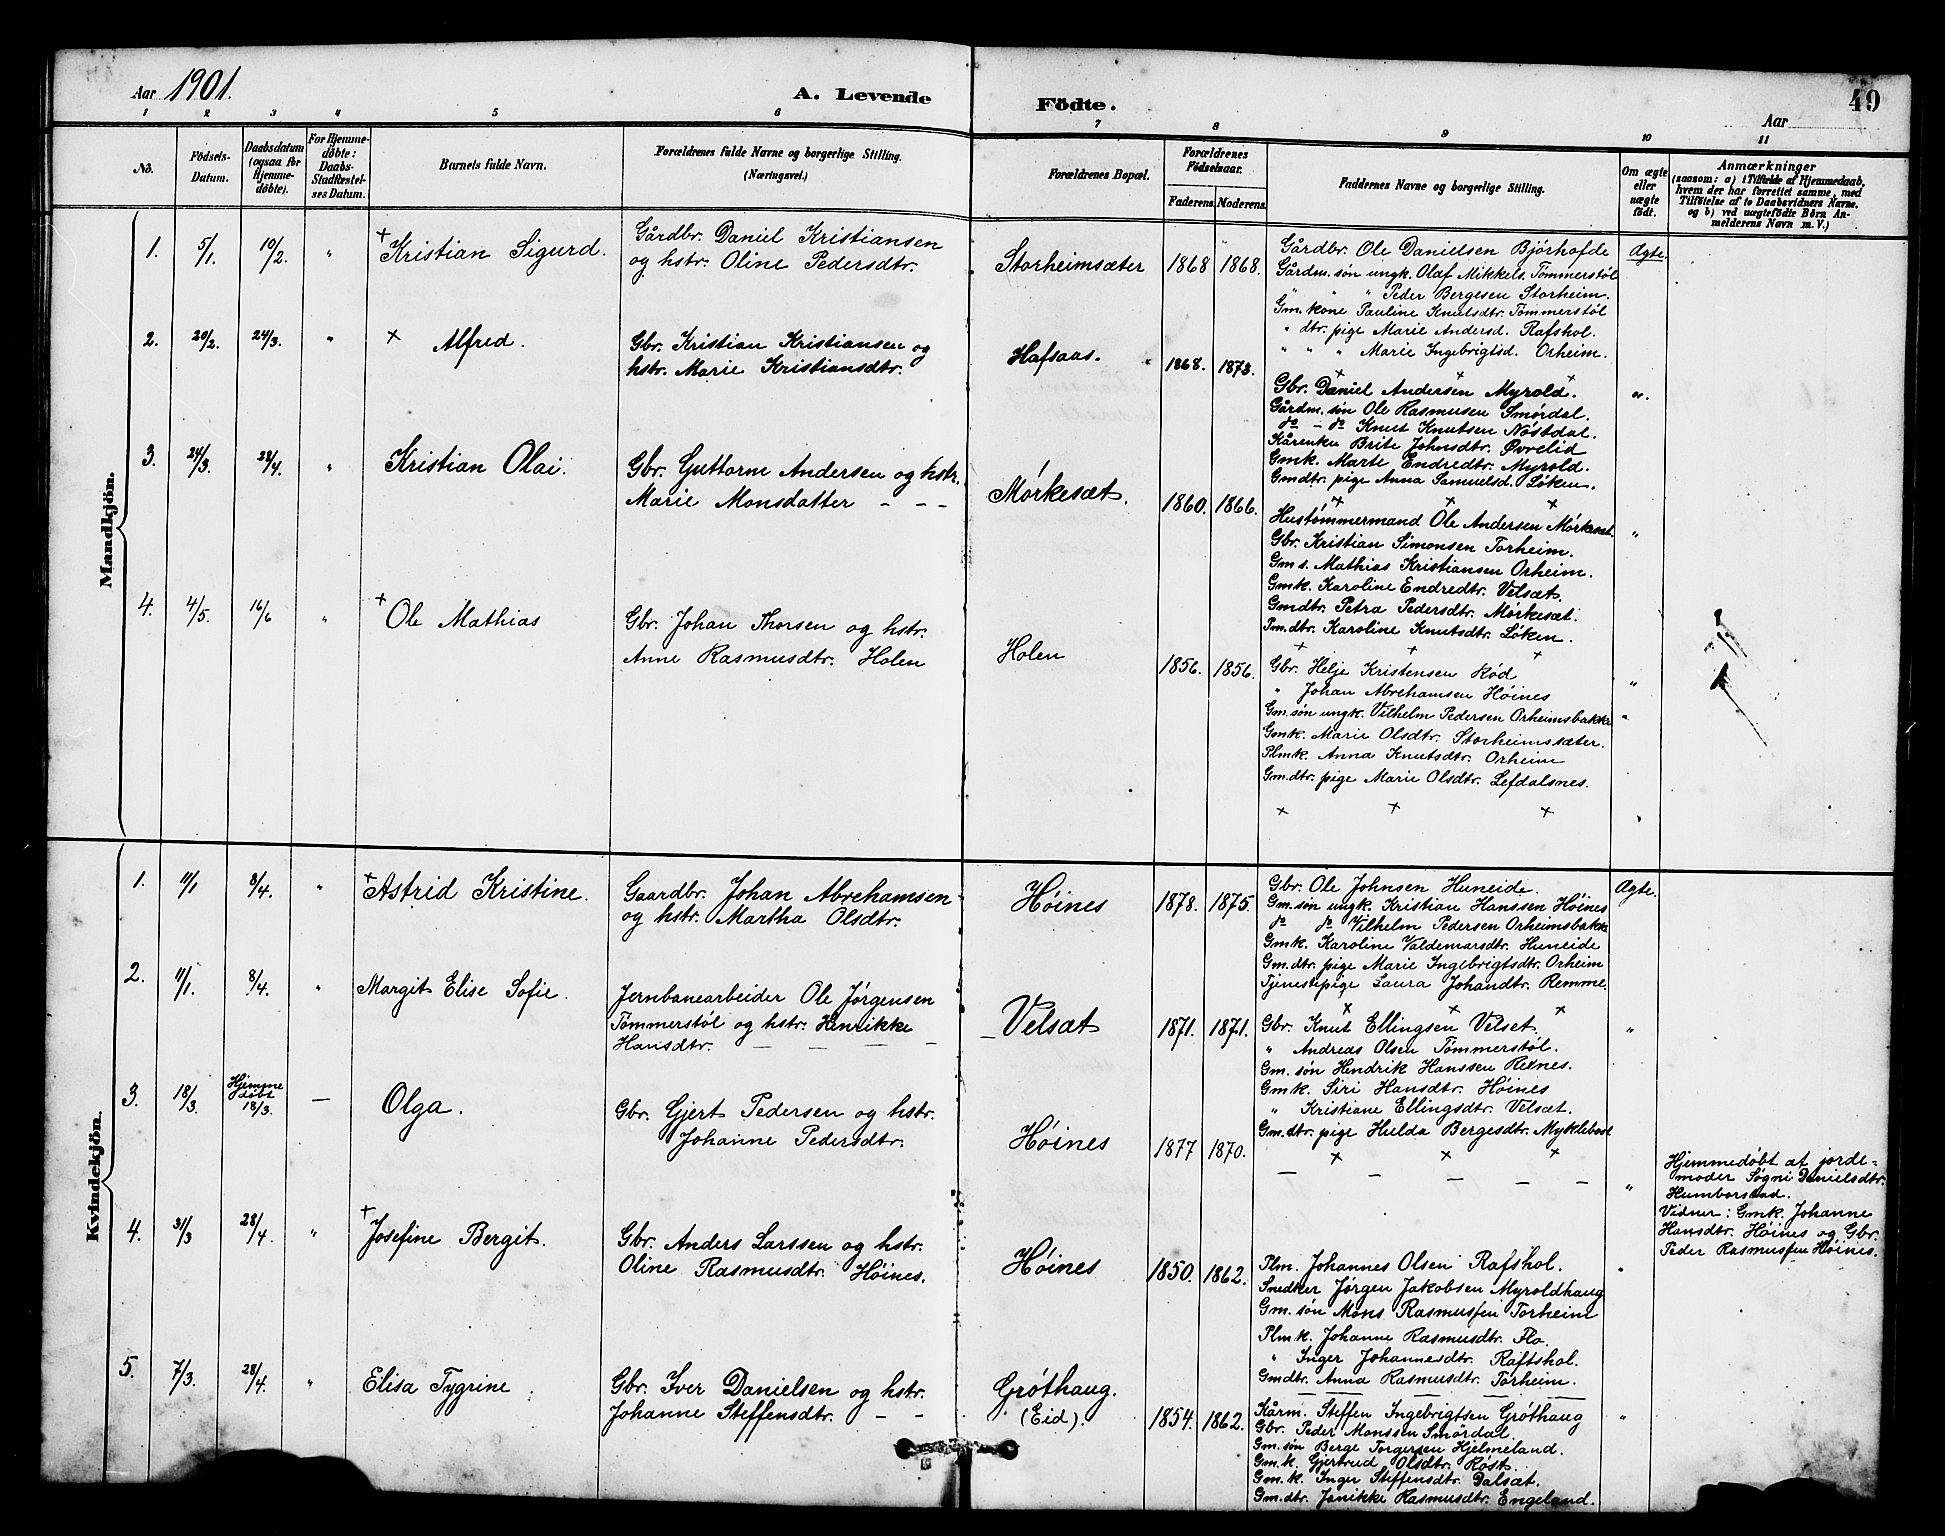 Aar 1901.
A. Levende
Födte.
49
Aar
1 2 3 4 5 6 7 8 9 10 11
No.
Födsels-
Datum.
Daabsdatum
(ogsaa for
Hjemme-
döbte).
For Hjemme-
döbte:
Daabs-
Stadfæstel-
ses Datum.
Barnets fulde Navn.
Forældrenes fulde Navne og borgerlige Stilling.
(Næringsvei.)
Forældrenes Bopæl.
Forældrenes
Födselsaar.
Faderens. Moderens.
Faddernes Navne og borgerlige Stilling.
Om ægte
eller
uægte
født.
Anmærkninger
(saasom: a) i Tilfælde af Hjemmedaab,
hvem der har forrettet samme, med
Tilföielse af to Daabsvidners Navne,
og b) ved uægtefödte Börn An-
melderens Navn m. V.)
Mandkjön.
1. 5/1. 10/2. " + Kristian Sigurd.
Gårdbr. Daniel Kristiansen
og hstr. Oline Pedersdtr.
Storheimsæter 1868 1868.
Gårdbr. Ole Danielsen Bjórhofde
Gårdm. søn ungk. Olaf Mikkels. Tömmerstöl
" " " Peder Bergesen Storheim.
Gm. kone Pauline Knutsdtr. Tömmerstöl
" dtr. pige Marie Andersd. Rafshol.
" " " Marie Ingebrigtsd. Orheim.
+ + +
Ægte.
2. 20/2. 24/3. " + Alfred.
Gbr. Kristian Kristiansen og
hstr. Marie Kristiansdtr.
Hafsaas. 1868. 1873.
Gbr. Daniel Andersen Myrold.
Gårdm. søn Ole Rasmusen Smórdal.
do - do Knut Knutsen Nóstdal.
Kårenke Brite Johnsdtr. Øvrelid
Gmk. Marte Endredtr. Myrold.
Gmdtr. pige Anna Samuelsd. Lóken.
+ + +
".
3. 24/3. 28/4. " Kristian Olai.
Gbr. Guttorm Andersen og hstr.
Marie Monsdatter - - -
Mórkesæt. 1860. 1866.
Hustømmermand Ole Andersen Mórkesæt.
Gbr. Kristian Simonsen Torheim.
Gm s. Mathias Kristiansen Orheim.
Gmk. Karoline Endredtr. Velsæt.
Gmdtr. Petra Pedersdtr. Mórkesæt.
Pm. dtr. Karoline Knutsdtr. Lóken.
+ + +
"
4. 4/5. 16/6 " + Ole Mathias
Gbr. Johan Thorsen og hstr.
Anne Rasmusdtr. Holen
Holen 1856. 1856.
Gbr. Helje Kristensen Ród
" Johan Abrehamsen Hóines
Gm. søn ungk. Vilhelm Pedersen Orheimsbakke
Gmk. Marie Olsdtr. Storheimsæter.
Plmk. Anna Knutsdtr. Orheim
Gm. dtr. pige Marie Olsdtr. Lefdalsnes.
+ + +
"
Kvindekjön.
1. 11/1 8/4. " + Astrid Kristine.
Gaardbr. Johan Abrehamsen
og hstr. Martha Olsdtr.
Hóines 1878. 1875.
Gbr. Ole Johnsen Huneide.
Gm. søn ungk. Kristian Hanssen Hóines
do do Vilhelm Pedersen Orheimsbakke
Gmk. Karoline Valdemarsdtr. Huneide
Gm. dtr. pige Marie Ingebrigtsdtr. Orheim
Tjenestepige Laura Johandtr. Remme.
+ + +
Ægte.
2. 11/1. 8/4. " Margit Elise Sofie.
Jernbanearbeider Ole Jørgensen
Tömmerstöl og hstr. Henrikke
Hansdtr. - - - -
Velsæt 1871. 1871.
Gbr. Knut Ellingsen Velset.
" Andreas Olsen Tömmerstöl.
Gm. søn Hendrik Hanssen Hóines.
Gmk. Siri Hansdtr. Hóines
" Kristiane Ellingsdtr. Velsæt.
Gm. dtr. pige Hulda Bergesdtr. Myklebost
+ + +
"
3. 18/3. Hjemme
døbt
18/3. — Olga.
Gbr. Gjert Pedersen og hstr.
Johanne Pedersdtr.
Hóines 1877 1870.
- - - - -
"
Hjemmedøbt af jorde=
moder Søgni Danielsdtr.
Humborstad.
Vidner: Gmk. Johanne
Hansdtr. Hóines og Gbr.
Peder Rasmussen Hóines.
4. 31/3 28/4. " + Josefine Bergit.
Gbr. Anders Larssen og hstr.
Oline Rasmusdtr. Hóines.
Hóines 1850. 1862.
Plm. Johannes Olsen Rafshol.
Snedker Jørgen Jakobsen Myroldhaug
Gm. søn Mons Rasmussen Torheim
Plmk. Johanne Rasmusdtr. Flo.
" Inger Johannesdtr. Raftshol.
Gmdtr. Anna Rasmusdtr. Torheim.
"
5. 7/3. 28/4. " Elisa Tygrine.
Gbr. Iver Danielsen og hstr.
Johanne Steffensdtr. - -
Gróthaug.
(Eid). 1854. 1862.
Kårm. Steffen Ingebrigtsen Gróthaug
Gbr. Peder Monssen Smórdal.
Gm. søn Berge Torgersen Hjelmeland.
Gm. k. Gjertrud Olsdtr. Róst.
Gm. k. Inger Steffensdtr. Dalsæt.
Gm. dtr. Janikke Rasmusdtr. Engeland.
"